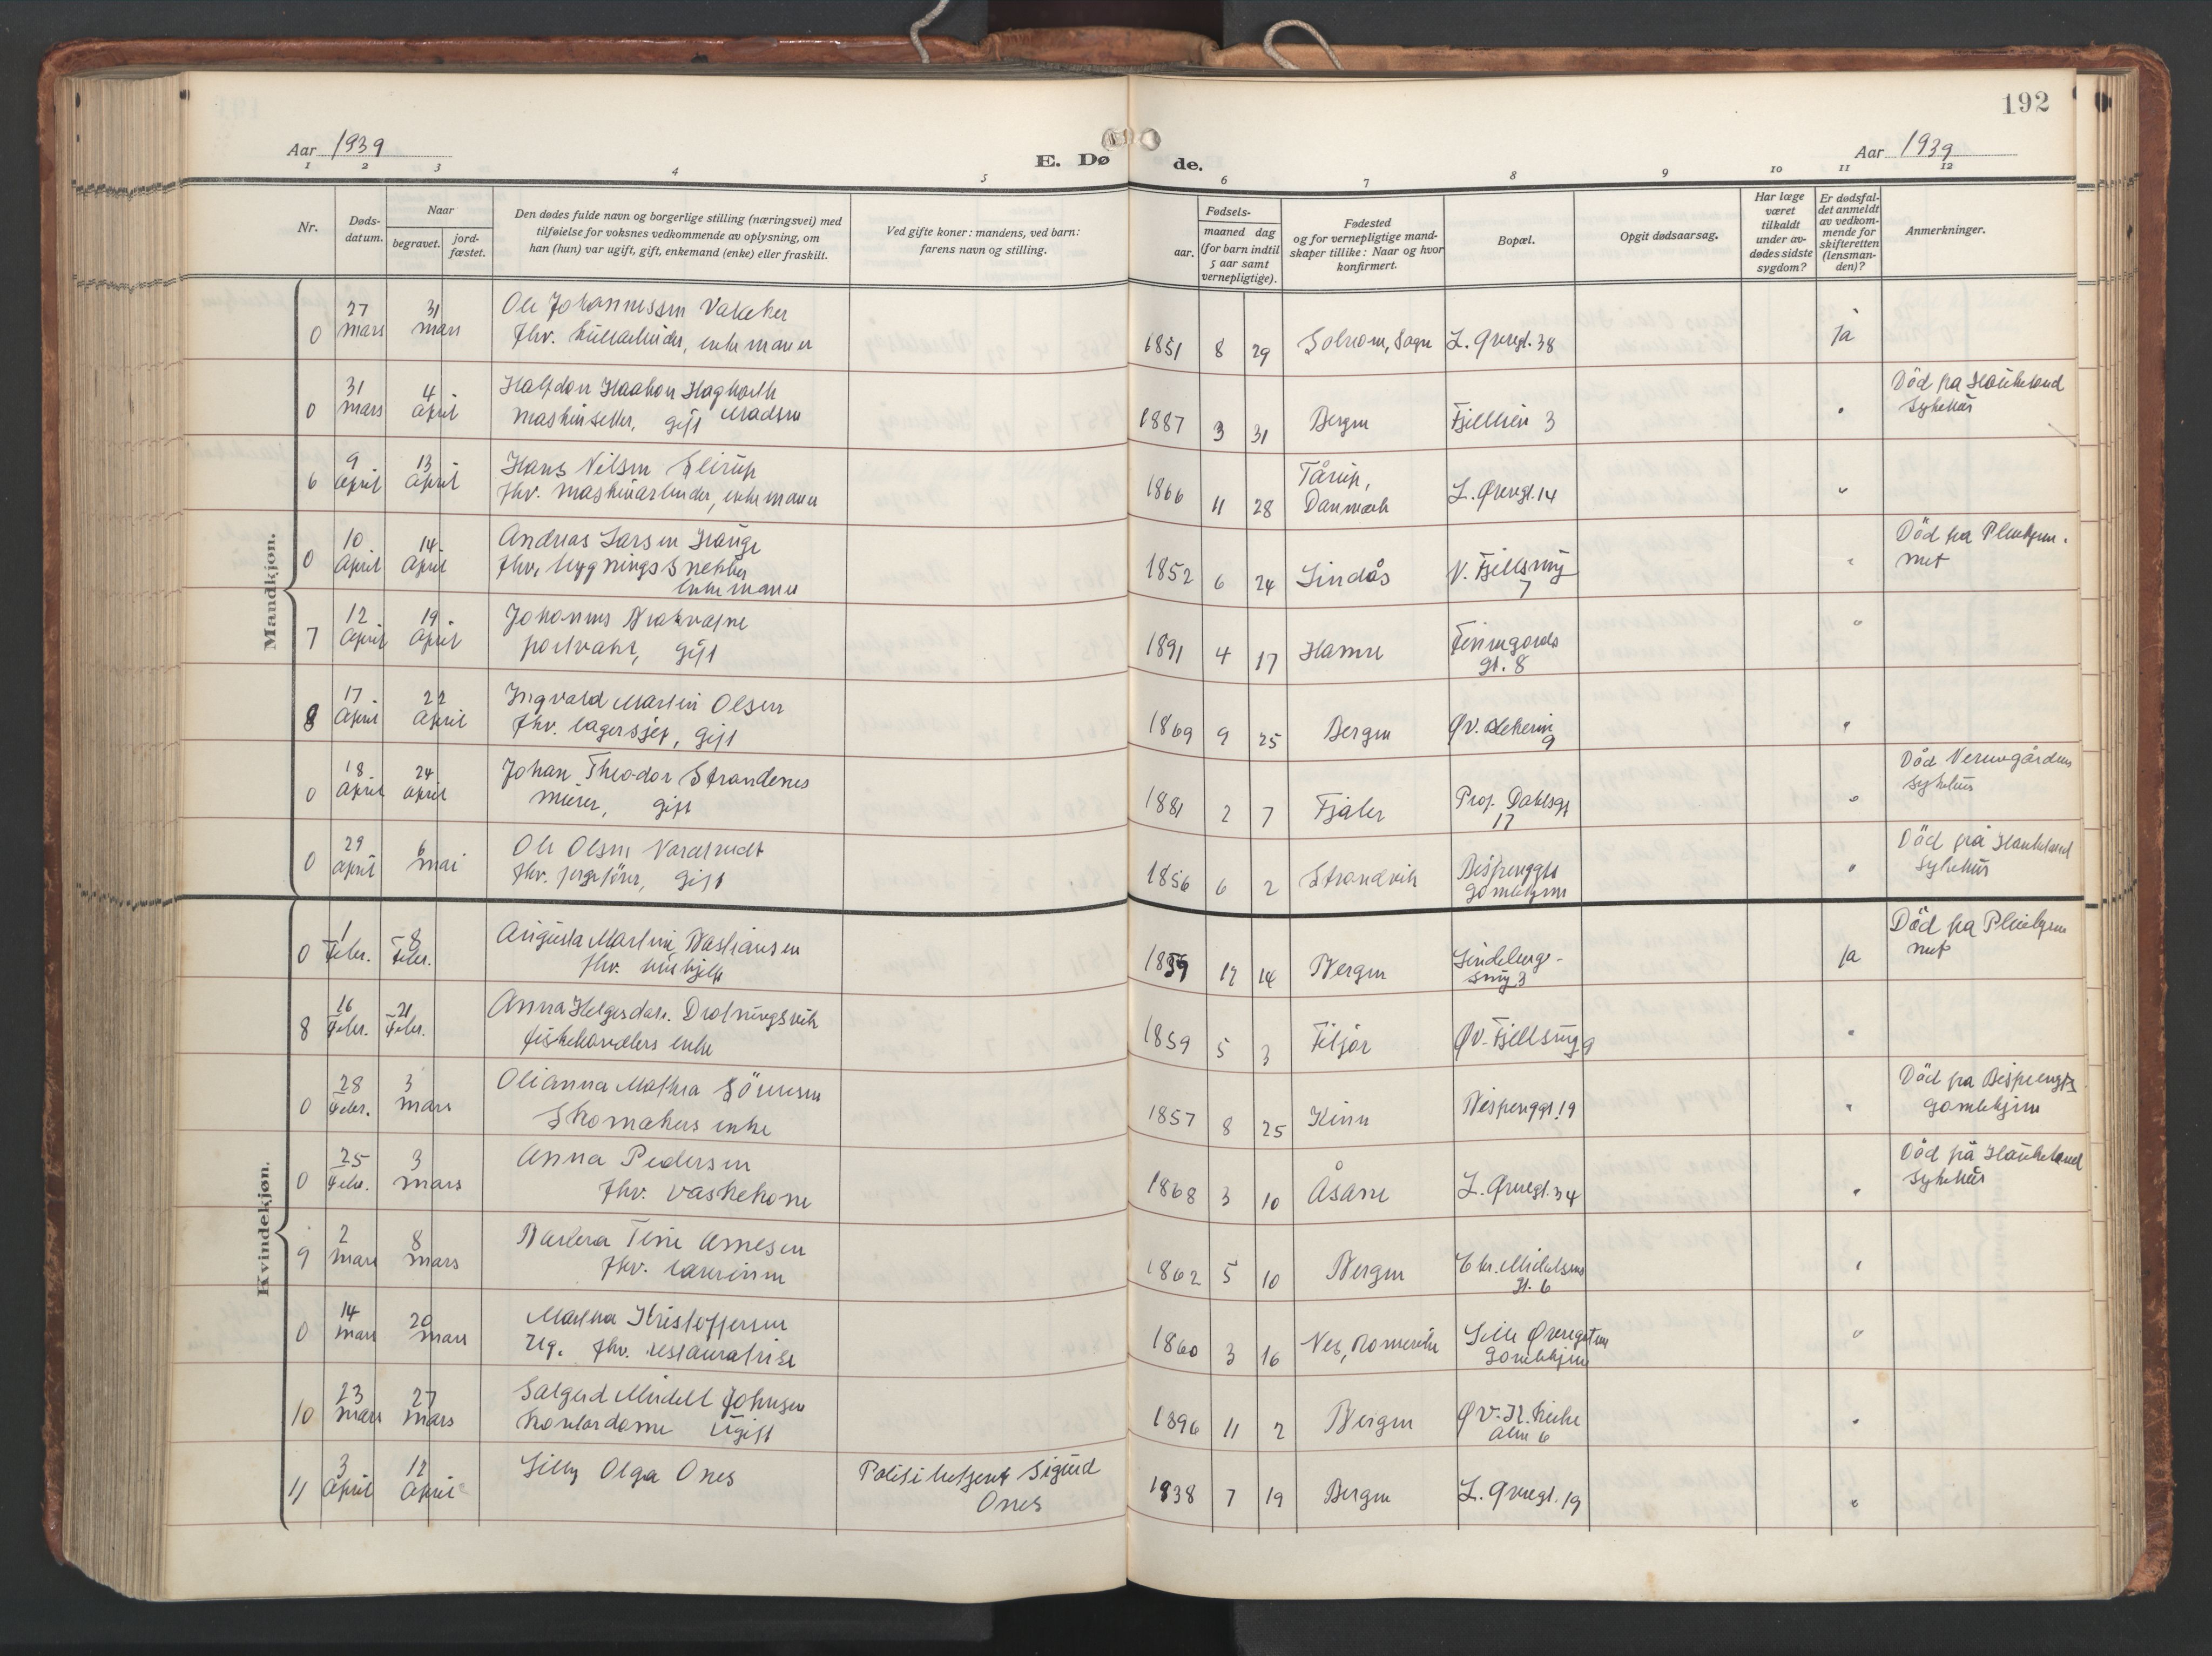 192
Aar 1939
E. Dø de.
Aar 1939
1 2 3 4 5 6 7 8 9 10 11 12
Nr.
Døds-
datum.
Naar
begravet.
jord-
fæstet.
Den dødes fulde navn og borgerlige stilling (næringsvei) med
tilføielse for voksnes vedkommende av oplysning, om
han (hun) var ugift, gift, enkemand (enke) eller fraskilt.
Ved gifte koner: mandens, ved barn:
farens navn og stilling.
Fødsels-
aar.
maaned dag
(for barn indtil
5 aar samt
vernepligtige).
Fødested
og for vernepligtige mand-
skaper tillike: Naar og hvor
konfirmert.
Bopæl.
Opgit dødsaarsag.
Har læge
været
tilkaldt
under av-
dødes sidste
sygdom?
Er dødsfal-
det anmeldt
av vedkom-
mende for
skifteretten
(lensman-
den)?
Anmerkninger.
Mandkjøn.
0 27 mars 31 mars
Ole Johannessen
fhv. enkemann
1851 8 29 Solvorn, Sogn L. Øvregt. 38 ja
0 31 mars 4 april
Halfdan Haakon Hagbarth
Madsen
maskinsetter, gift
1887 3 31 Bergen Fjellien 3 "
Död på Haukeland
sykehus
6 9 april 13 april
Hans Nilsen Slirup
fhv. maskinarbeider, enkemann
1866 11 28 Tårup,
Danmark L. Øvregt. 14 "
0 10 April 14 April
Andreas Larsen Hauge
fhv. bygningssnekker
enkemann
1852 6 24 Lindås V. Fjellsmug
7 "
Död på Pleiehjem-
met
7 12 April 19 April
Johannes
portvakt, gift
1891 4 17 Hamre Finnegårds
gt. 8 "
8 17 April 22 April
Ingvald Martin Olsen
fhv. lagersjef, gift
1869 9 25 Bergen Øv. Blekevei
9 "
0 18 April 24 april
Johan Theodor Strandenes
murer, gift
1881 2 7 Fjaler Prof. Dahlsgt
17 "
Död Verne­gårdens
sykehus
0 29 april 6 mai
Ole Olsen
fhv. fergefører, gift
1856 6 2 Strandvik Bispenggts
gamlehjem "
Död på Haukeland
Sykehus
Kvindekjøn.
0 1 Febr. 8 Febr.
Augusta Martine Bastiansen
fhv. hushjelp
1859 12 14 Bergen
smug 3 ja
Död på Pleiehjem
met
8 16 Febr. 21 Febr.
Anna Helgesdatr. Drotningsvik
fiskehandlers enke
1859 5 3 Fitjar Øv. Fjellsmug 9 "
0 28 Febr. 3 mars
Olianna Mathea Sörensen
Skomakers enke
1857 8 25 Kinn Bispenggt. 19 "
Död på Bispenggts
gamlehjem
0 25 Febr. 3 mars
Anna Pedersen
fhv. vaskekone
1868 3 10 Åsane L. Øvregt. 34 "
Död på Haukeland
sykehus
9 2 mars 8 mars
Barbra Tine Arnesen
fhv. lærerinne
1862 5 10 Bergen Chr. Michelsens
gt. 6 "
0 14 mars 20 mars
Martha Kristoffersen
Ug. fhv. restauratrise
1860 3 16 Nes, Romerike Lille Øvregaten
gamlehjem "
10 23 mars 27 mars
Johnsen
kontordame ugift
1896 11 2 Bergen Øv. Kr. kirke
alm 6 "
11 3 April 12 April
Lilly Olga Ones
Politibetjent Sigurd
Ones
1938 7 19 Bergen L. Øvregt. 19 "